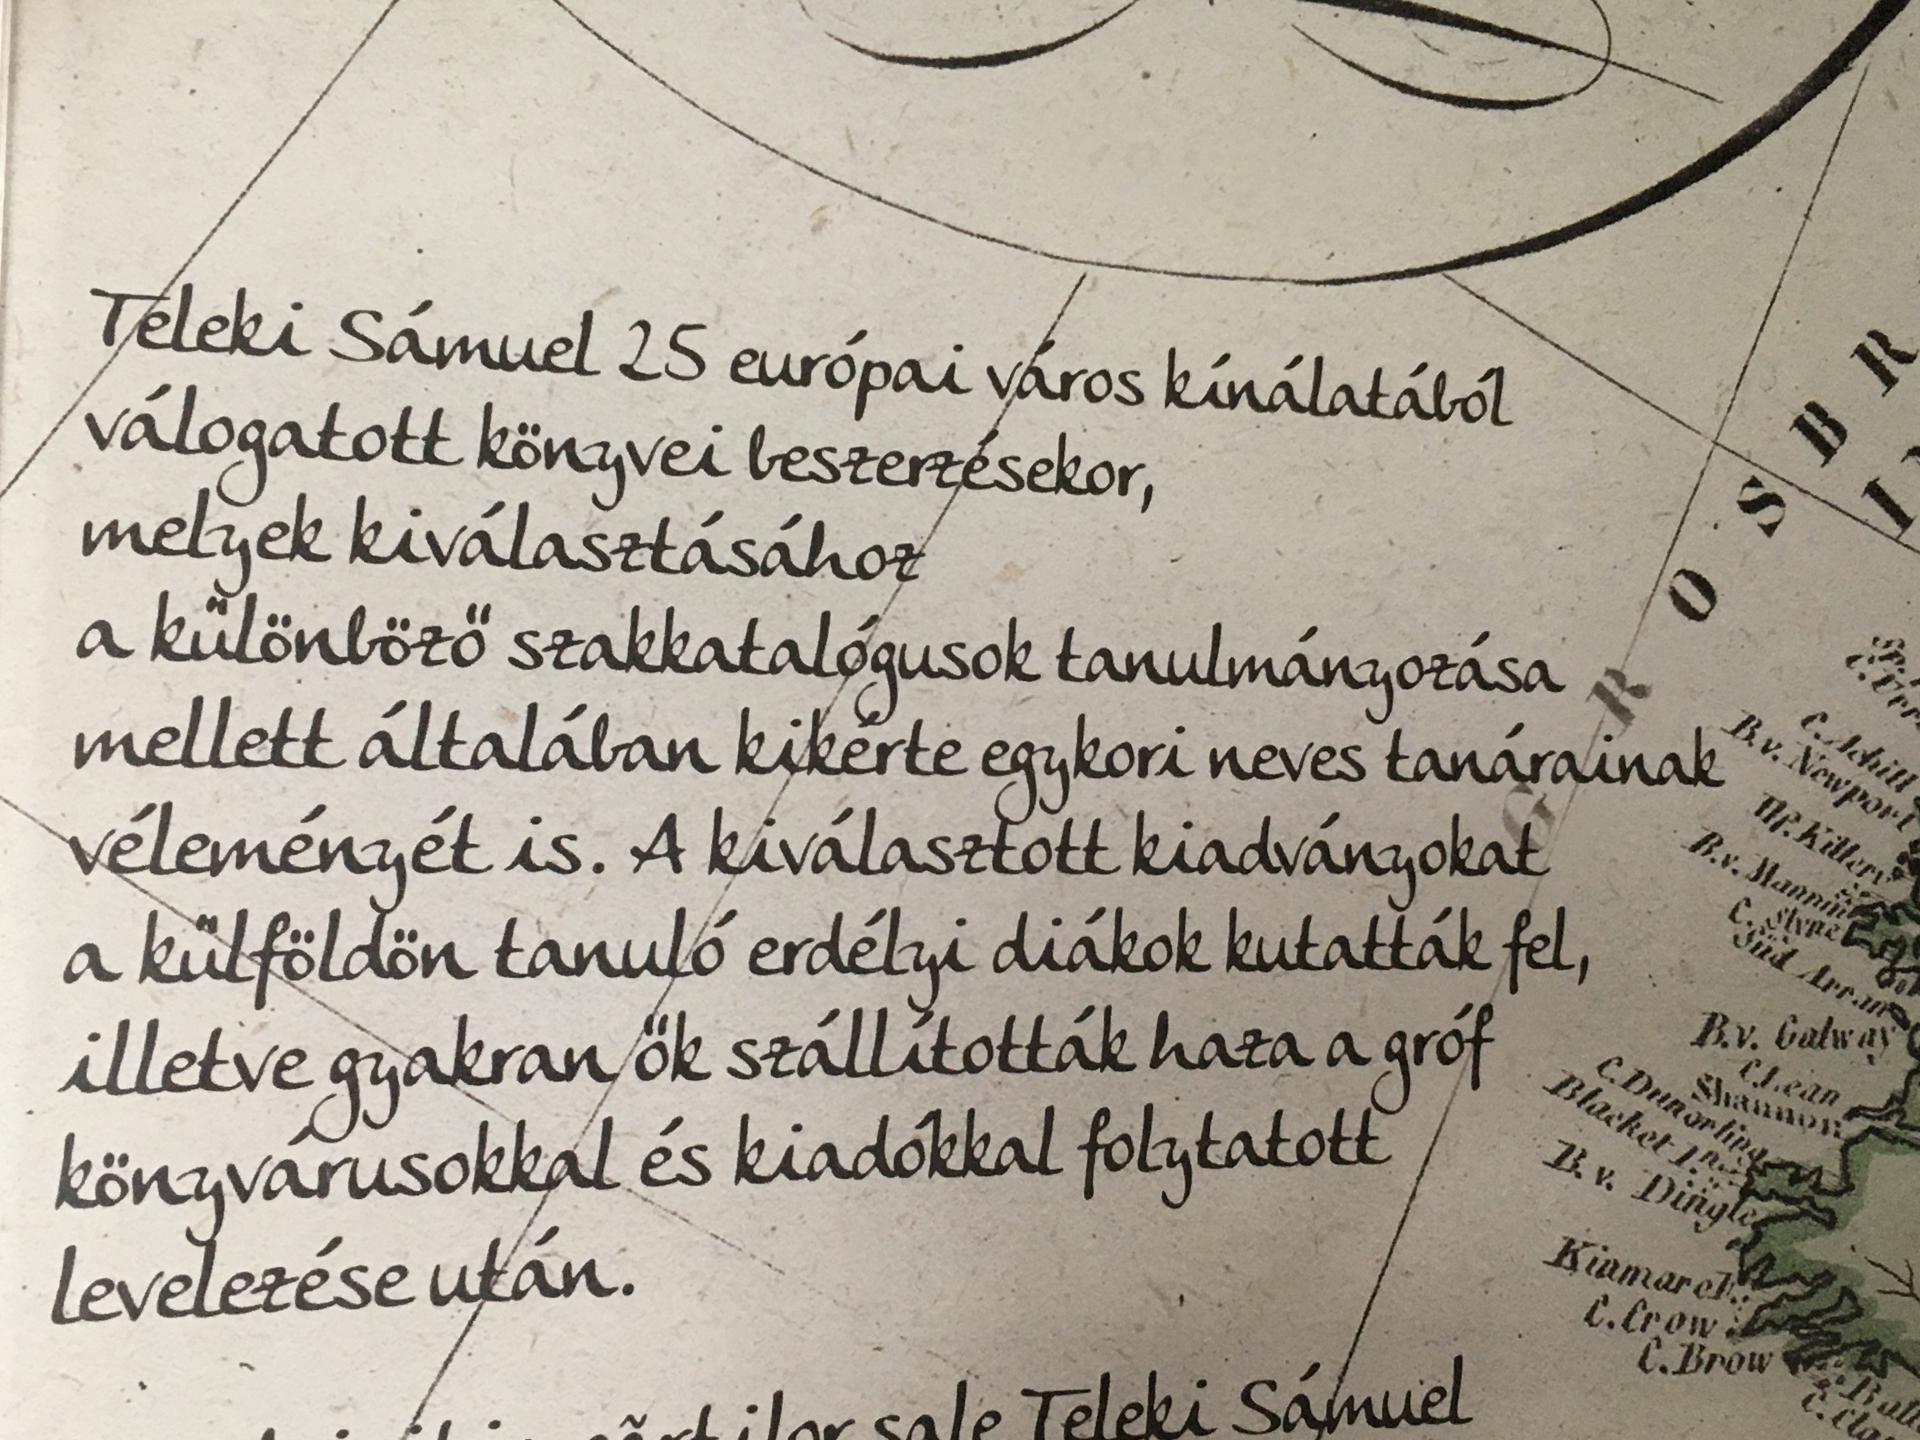 Teleki Sámuel 25 európai város kínálatából
válogatott könyvei beszerzésekor,
melyek kiválasztásához
a különböző szakkatalógusok tanulmányozása
mellett általában kikérte egykori neves tanárainak
véleményét is. A kiválasztott kiadványokat
a külföldön tanuló erdélyi diákok kutatták fel,
illetve gyakran ők szállították haza a gróf
könyvárusokkal és kiadókkal folytatott
levelezése után.
sale Teleki Sámuel
G R O S B R
C. Achill
B.v. Newport
B.v. Galway
C. Lean
Shannon
B.v. Dingle
C. Crow
C. Brow